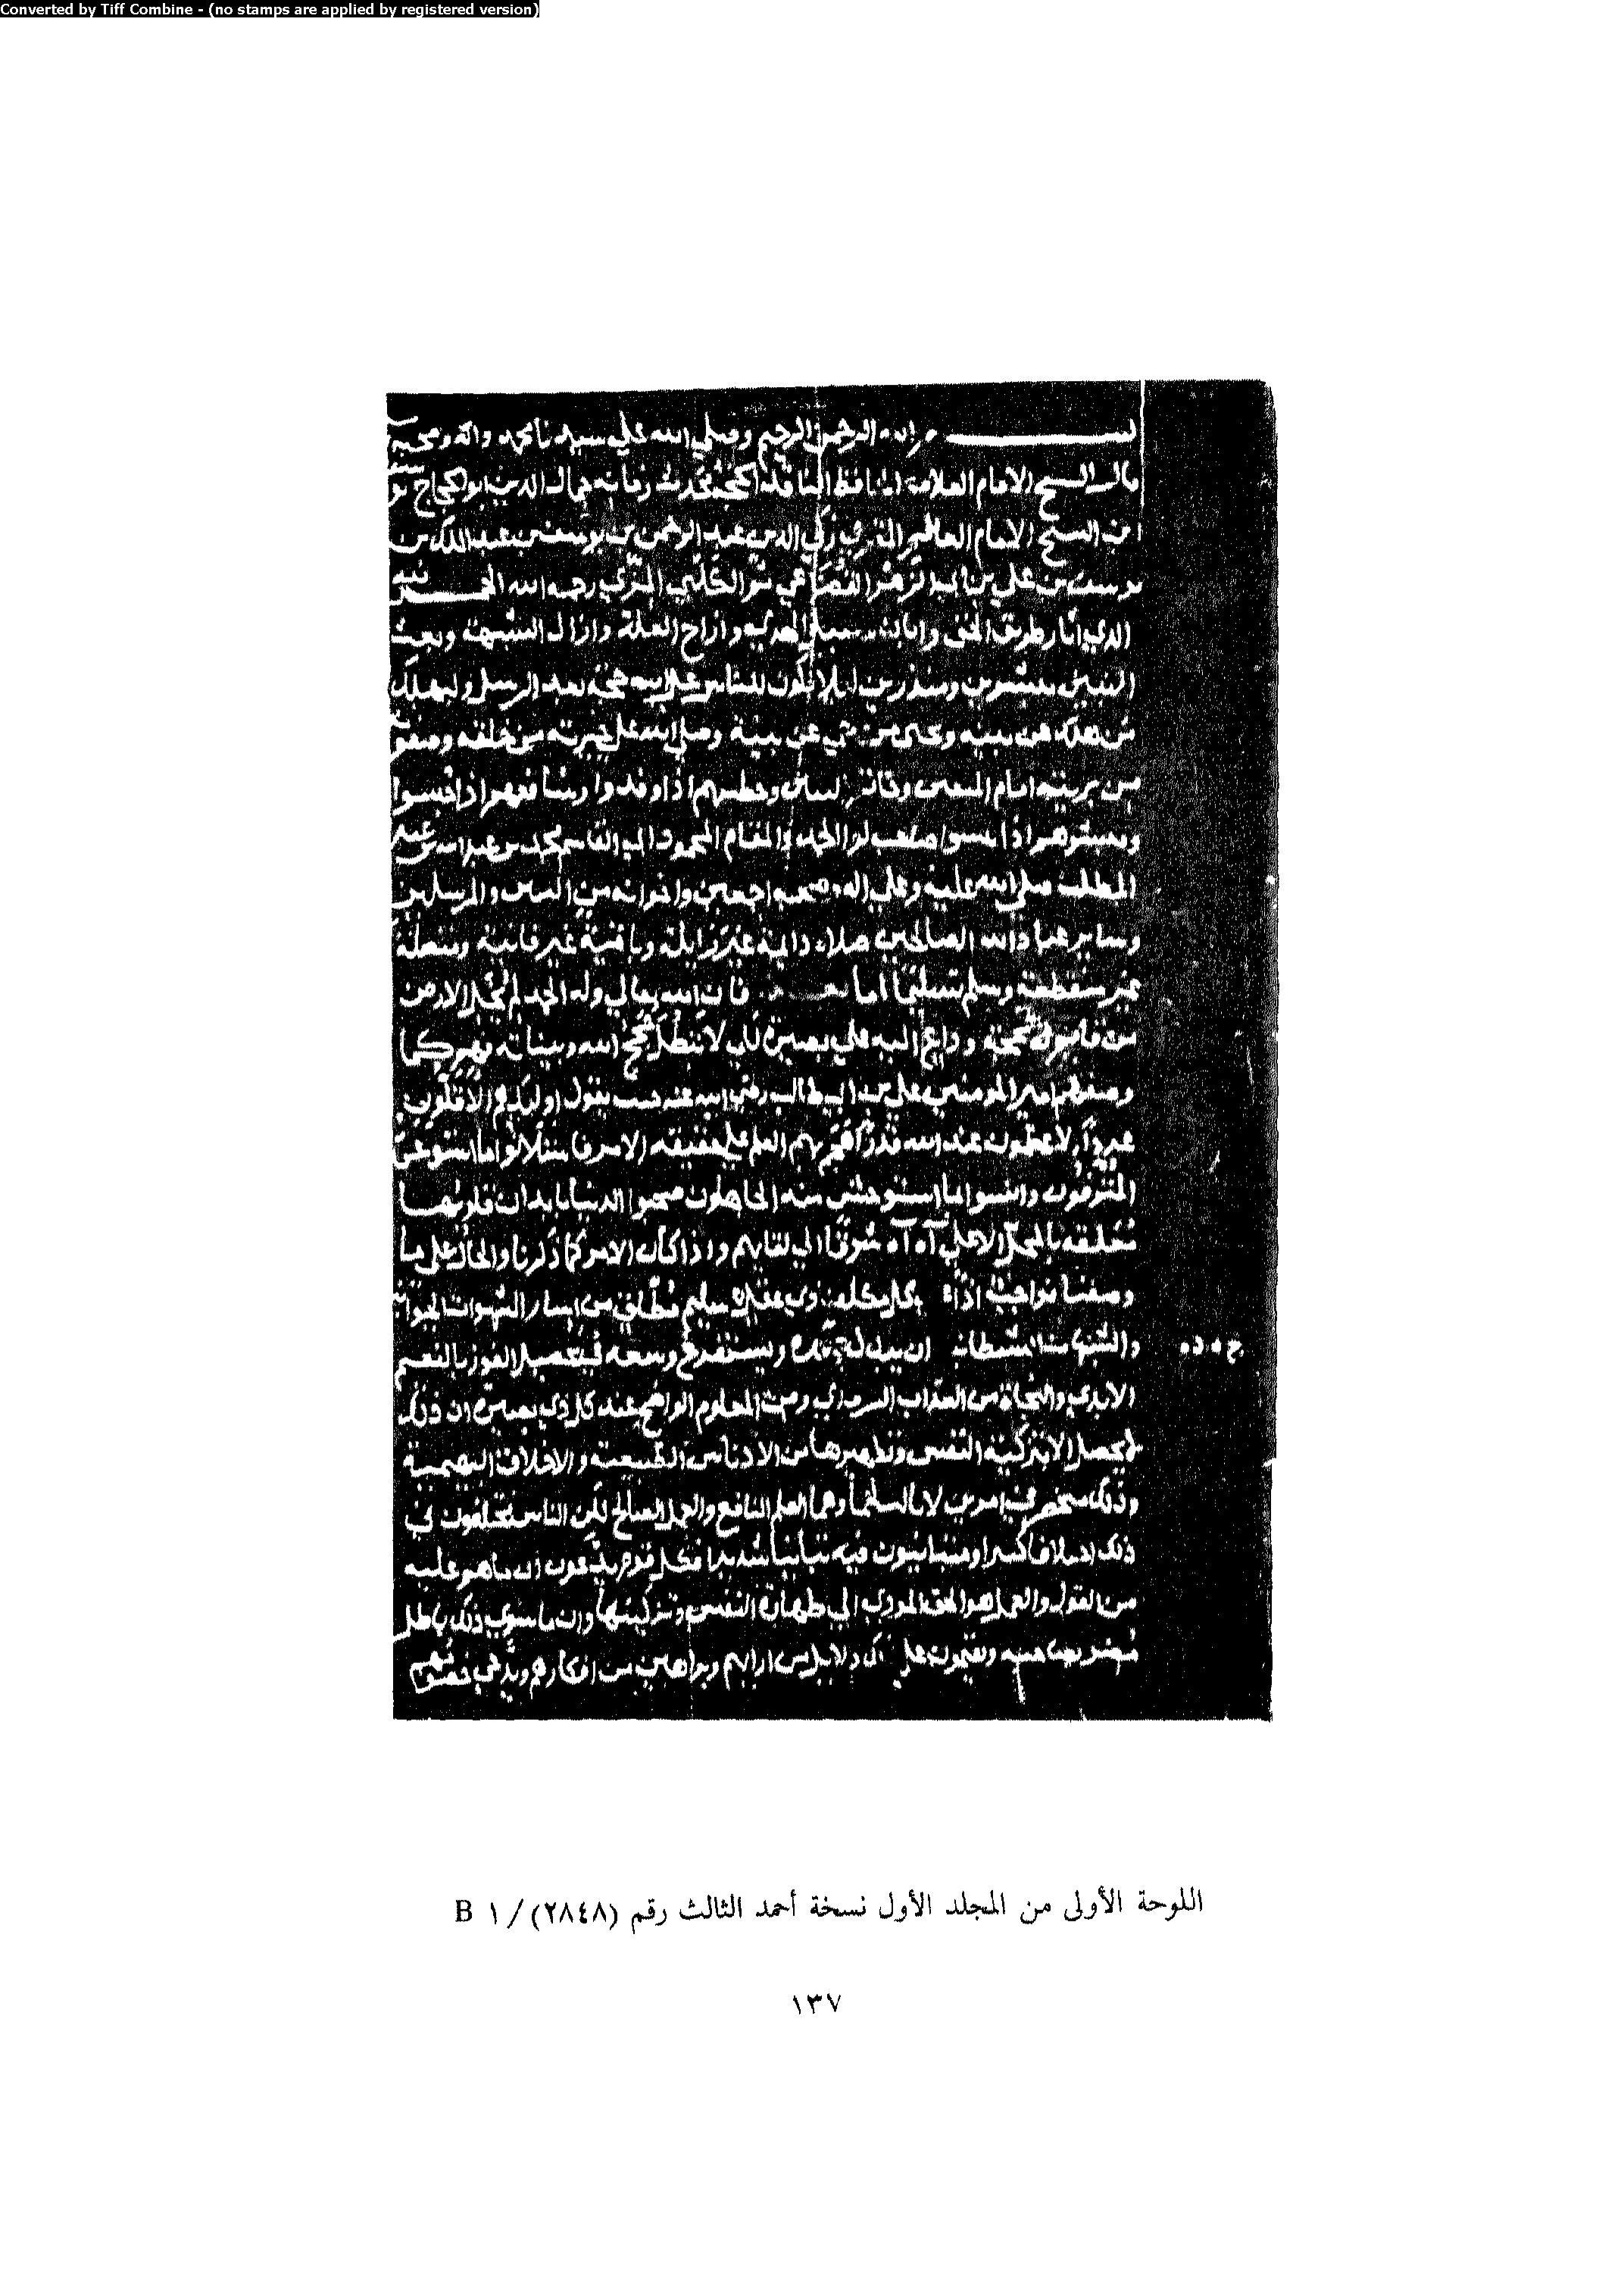 Converted by Tiff Combine - (no stamps are applied by registered version)
بسم الله الرحمن الرحيم وصلى الله على سيدنا محمد واله وصحبه
قال الشيخ الامام العلامة الحافظ الناقد الحجة محدث زمانه جمال الدين ابو الحجاج
بن الشيخ الامام العالم المقرئ زكي الدين عبد الرحمن بن يوسف بن عبد الملك بن
يوسف بن علي بن ابي الزهر القضاعي ثم الحلبي المزي رحمه الله الحمد لله
الذي انار طريق الحق وابان سبيل الهدى وازاح العلة وازال الشبهة وبعث
النبيين مبشرين ومنذرين ليلا يكون للناس على الله حجة بعد الرسل وليهلك
من هلك عن بينة ويحيى من حي عن بينة وصلى الله على خيرته من خلقه وصفوته
من بريته امام المتقين وخاتم النبيين وخطيبهم اذا وفدوا وشافعهم اذا حبسوا
ومبشرهم اذا ايسوا صاحب لوا الحمد والمقام المحمود ابي القاسم محمد بن عبد الله بن عبد
المطلب صلى الله عليه وعلى اله وصحبه اجمعين واخوانه من النبيين والمرسلين
وساير عباد الله الصالحين صلاة دايمة غير زايلة وباقية غير فانية ومتصلة
غير منقطعة وسلم تسليما اما بعد فان الله تعالى وله الحمد لم يخل الارض
من قايم له بحجة وداع اليه على بصيرة لكي لا تبطل حجج الله وبيناته فهم كما
وصفهم امير المومنين علي بن ابي طالب رضي الله عنه حيث يقول اوليك هم الاقلون
عددا الاعظمون عند الله قدرا هجم بهم العلم على حقيقة الامر فاستلانوا ما استوعر
المترفون وانسوا بما استوحش منه الجاهلون صحبوا الدنيا بابدان قلوبها
متعلقة بالمحل الاعلى آه آه شوقا الى لقايهم واذا كان الامر كما ذكرنا والحال على ما
وصفنا فواجب اذا على كل مكلف ذي عقل سليم مطلق من اسار الشهوات الحيوانية
والشبهات الشيطانية ان يبذل جهده ويستفرغ وسعه في تحصيل الفوز بالنعيم
الابدي والنجاة من العذاب السرمدي ومن المعلوم الواضح عند كل ذي بصيرة ان ذلك
لا يحصل الا بتزكية النفس وتطهيرها من الادناس الطبيعية والاخلاق البهيمية
وذلك منحصر في امرين لا ثالث لهما وهما العلم النافع والعمل الصالح لكن الناس مختلفون في
ذلك اختلافا كثيرا ومتباينون فيه تباينا شديدا فكل قوم يدعون ان ما هم عليه
من القول والعمل هو الحق المودي الى طهارة النفس وتزكيتها وان ما سوى ذلك باطل
مضر بصاحبه ويقيمون على ذلك دلايل من ارايهم وبراهين من افكارهم ويدعي
اللوحة الأولى من المجلد الأول نسخة أحمد الثالث رقم (٢٨٤٨)/ ١ B
١٣٧